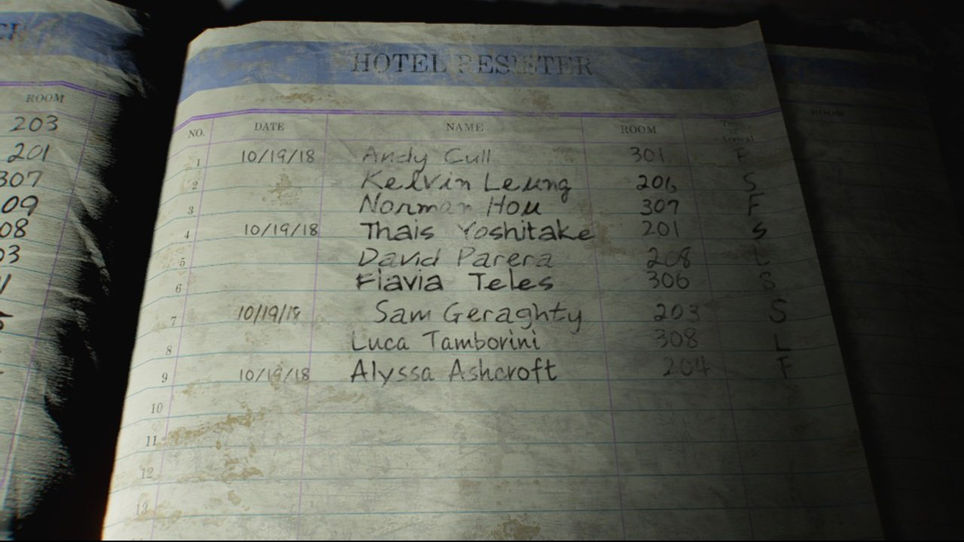 ROOM
203
201
307
09
08
03
HOTEL
NO. DATE NAME ROOM
1 10/19/18 Andy Cull 301 F
2 Kelvin Leung 206 S
3 Norman Hou 307 F
4 10/19/18 Thais Yoshitake 201 S
5 David Parera 208 L
6 Flavia Teles 306 S
7 10/19/18 Sam Geraghty 203 S
8 Luca Tamborini 308 L
9 10/19/18 Alyssa Ashcroft 204 F
10
11
12
13